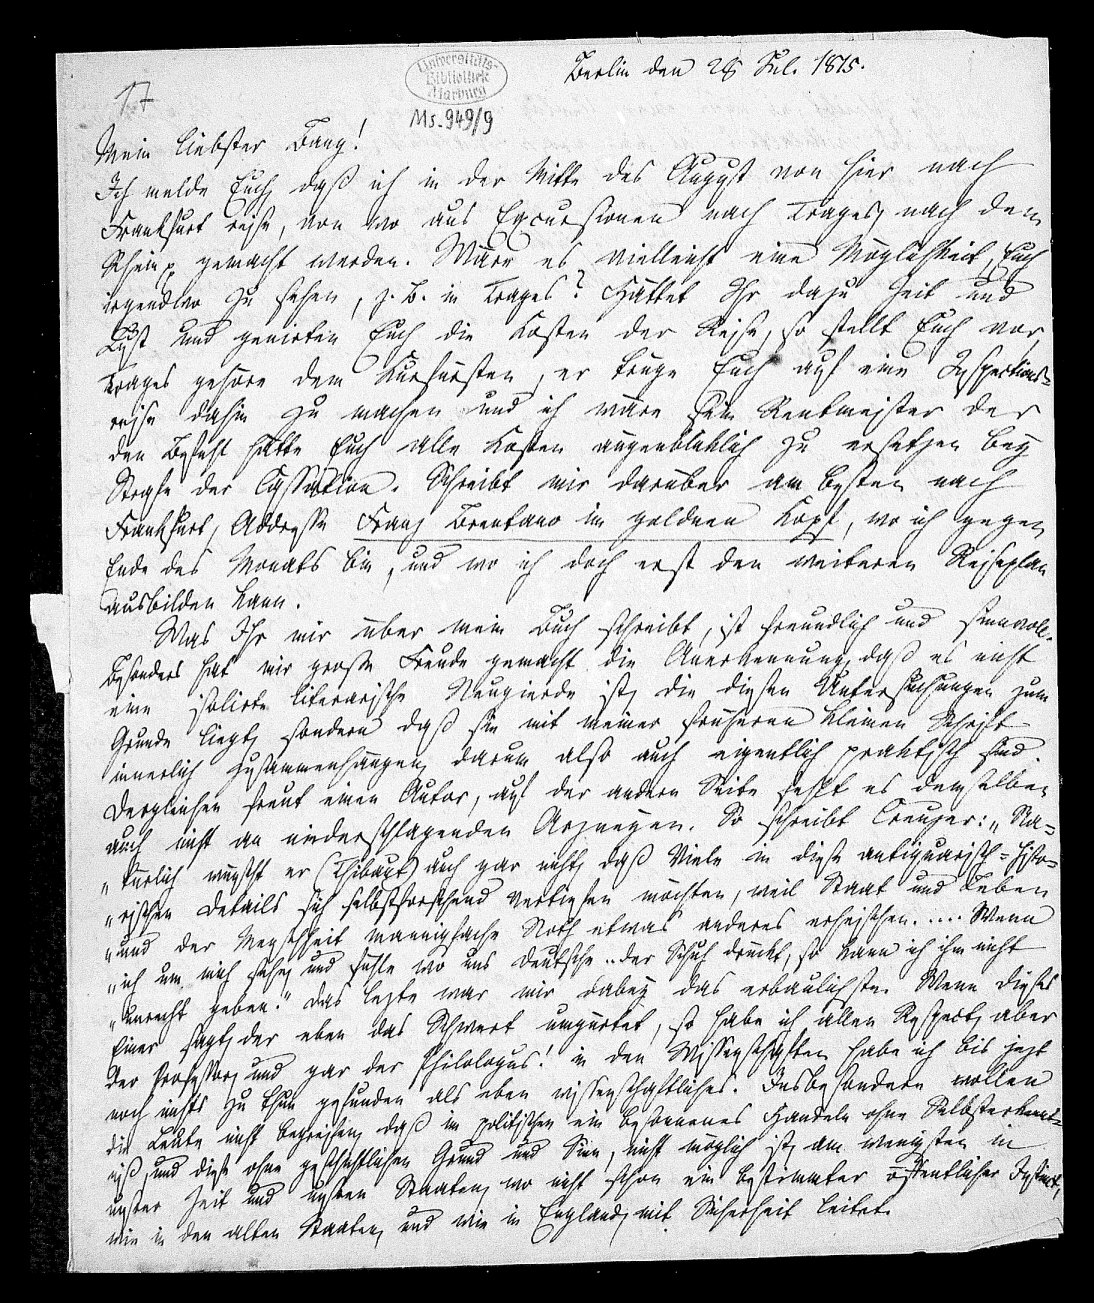 Berlin den 28 Jul. 1815.
Universitäts-
Bibliothek
Marburg
Ms. 949/9
17
Mein liebster Bang!
Ich melde Euch daß ich in der Mitte des August von hier nach
Frankfurt reise, von wo aus Excursionen nach Trages, nach dem
Rhein gemacht werden. Wäre es vielleicht eine Möglichkeit, Euch
irgendwo zu sehen, z. B. in Trages? Hättet Ihr dazu Zeit und
Lust und genirten Euch die Kosten der Reise, so stellt Euch vor,
Trages gehöre dem Kurfürsten, er trüge Euch auf eine Inspections-
reise dahin zu machen und ich wäre sein Rentmeister der
den Befehl hätte Euch alle Kosten augenblicklich zu ersetzen bey
Strafe der Cassation. Schreibt mir darüber am besten nach
Frankfurt, Addresse Franz Brentano im goldnen Kopf, wo ich gegen
Ende des Monats bin, und wo ich doch erst den weiteren Reiseplan
ausbilden kann.
Was Ihr mir über mein Buch schreibt, ist freundlich und sinnvoll.
Besonders hat mir große Freude gemacht die Anerkennung, daß es nicht
eine isolirte literarische Neugierde ist, die diesen Untersuchungen zum
Grunde liegt, sondern daß sie mit meiner früheren kleinen Schrift
innerlich zusammenhängen, darum also auch eigentlich praktisch sind.
Dergleichen freut einen Autor, auf der andern Seite fehlt es demselben
auch nicht an niederschlagenden Arzneyen. So schreibt Creuzer: „Na-
„türlich wünscht er (Thibaut) auch gar nicht, daß Viele in diese antiquarisch-histo-
„rischen Details sich selbstforschend vertiefen möchten, weil Staat und Leben
„und der Menschheit mannigfache Noth etwas anderes erheischen. .... Wenn
„ich um mich sehe, und fühle wo uns Deutsche .. der Schuh drückt, so kann ich ihm nicht
„unrecht geben.“ Das lezte war mir dabey das erbaulichste. Wenn dieses
Einer sagt, der eben das Schwert umgürtet, so habe ich allen Respect, aber
der Professor, und gar der Philologus! in den Wissenschaften habe ich bis jezt
noch nichts zu thun gefunden als eben wissenschaftliches. Insbesondere wollen
die Leute nicht begreifen, daß im politischen ein besonnenes Handeln ohne Selbsterkennt-
niß, und diese ohne geschichtlichen Grund und Sinn, nicht möglich ist, am wenigsten in
unsrer Zeit und unsren Staaten, wo nicht schon ein bestimmter öffentlicher Instinct,
wie in den alten Staaten, und wie in England, mit Sicherheit leitet.